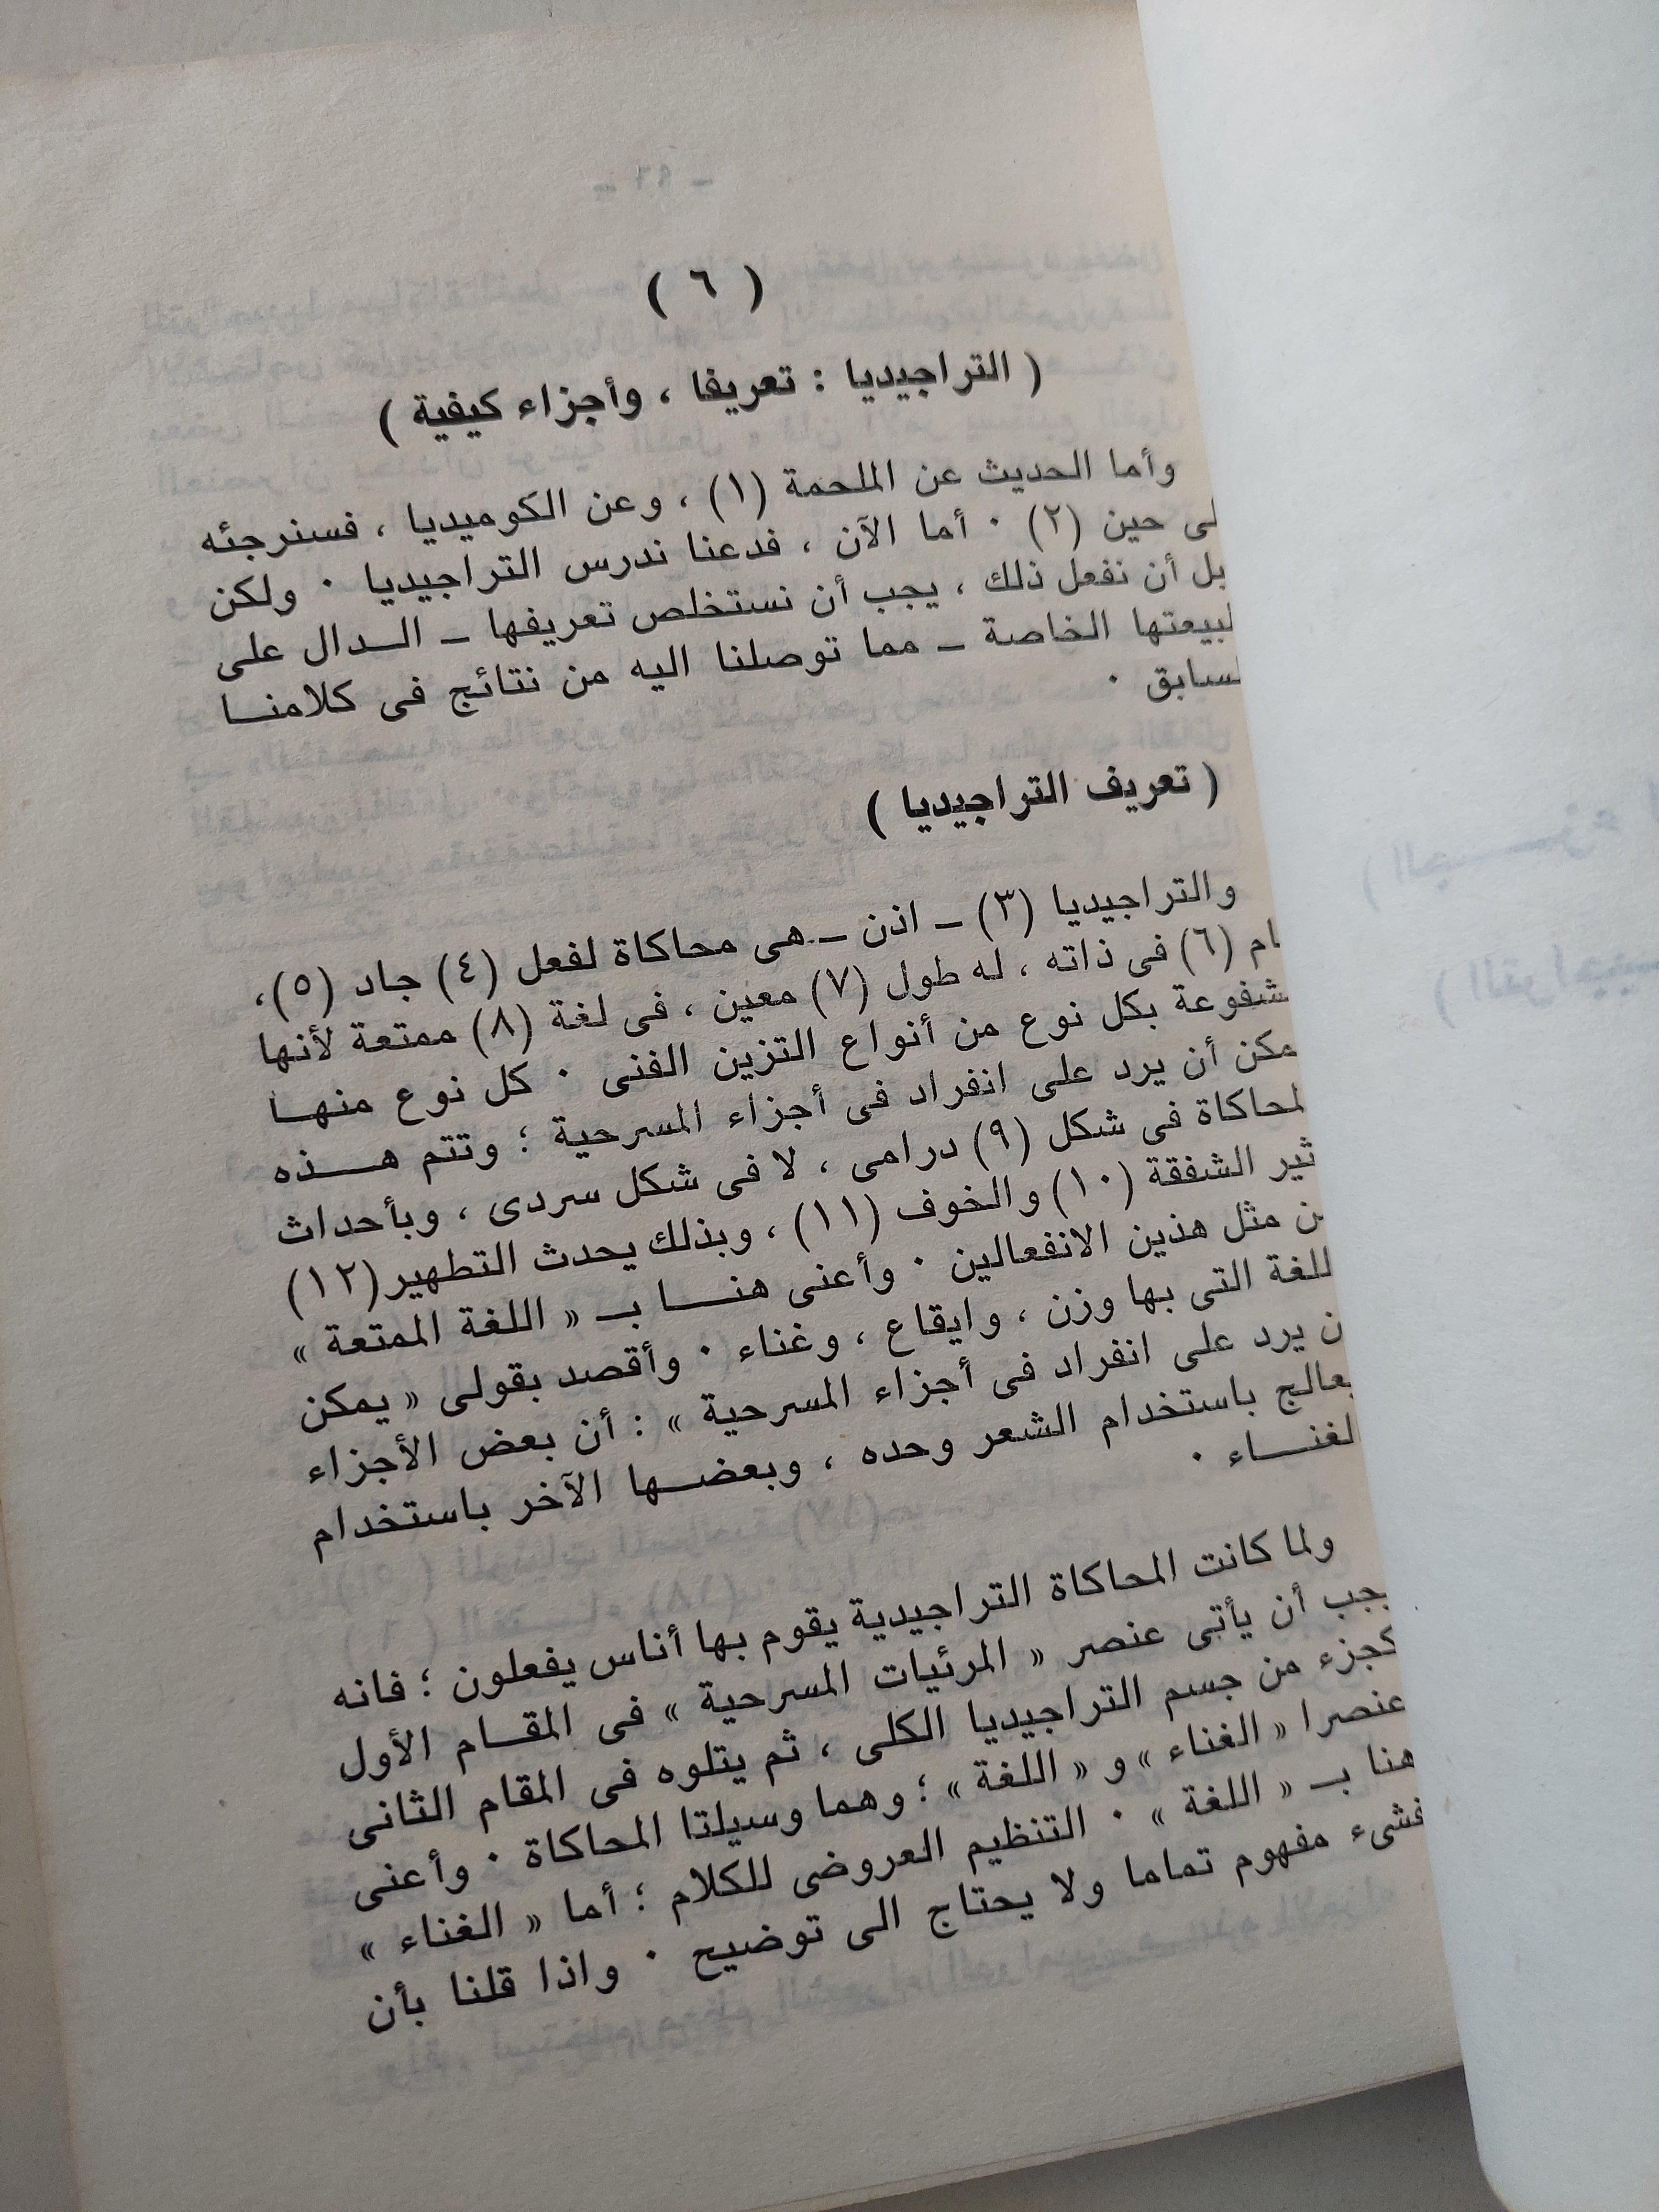 ( ٦ )
( التراجيديا : تعريفا ، وأجزاء كيفية )
وأما الحديث عن الملحمة (١) ، وعن الكوميديا ، فسنرجئه
لى حين (٢) ٠ أما الآن ، فدعنا ندرس التراجيديا ٠ ولكن
بل أن نفعل ذلك ، يجب أن نستخلص تعريفها ــ الـــدال على
لبيعتها الخاصة ــ مما توصلنا اليه من نتائج فى كلامنـــا
لسابق ٠
( تعريف التراجيديا )
والتراجيديا (٣) ــ اذن ــ هى محاكاة لفعل (٤) جاد (٥)،
ام (٦) فى ذاته ، له طول (٧) معين ، فى لغة (٨) ممتعة لأنها
شفوعة بكل نوع من أنواع التزين الفنى ٠ كل نوع منهـــا
مكن أن يرد على انفراد فى أجزاء المسرحية ؛ وتتم هـــذه
لمحاكاة فى شكل (٩) درامى ، لا فى شكل سردى ، وبأحداث
ثير الشفقة (١٠) والخوف (١١) ، وبذلك يحدث التطهير (١٢)
ن مثل هذين الانفعالين ٠ وأعنى هنـــا بــ « اللغة الممتعة »
للغة التى بها وزن ، وايقاع ، وغناء ٠ وأقصد بقولى « يمكن
ن يرد على انفراد فى أجزاء المسرحية » : أن بعض الأجزاء
يعالج باستخدام الشعر وحده ، وبعضـــها الآخر باستخدام
لغنـــاء ٠
ولما كانت المحاكاة التراجيدية يقوم بها أناس يفعلون ؛ فانه
يجب أن يأتى عنصر « المرئيات المسرحية » فى المقـــام الأول
كجزء من جسم التراجيديا الكلى ، ثم يتلوه فى المقام الثانى
عنصرا « الغناء » و « اللغة » ؛ وهما وسيلتا المحاكاة ٠ وأعنى
هنا بــ « اللغة » ٠ التنظيم العروضى للكلام ؛ أما « الغناء »
فشىء مفهوم تماما ولا يحتاج الى توضيح ٠ واذا قلنا بأن